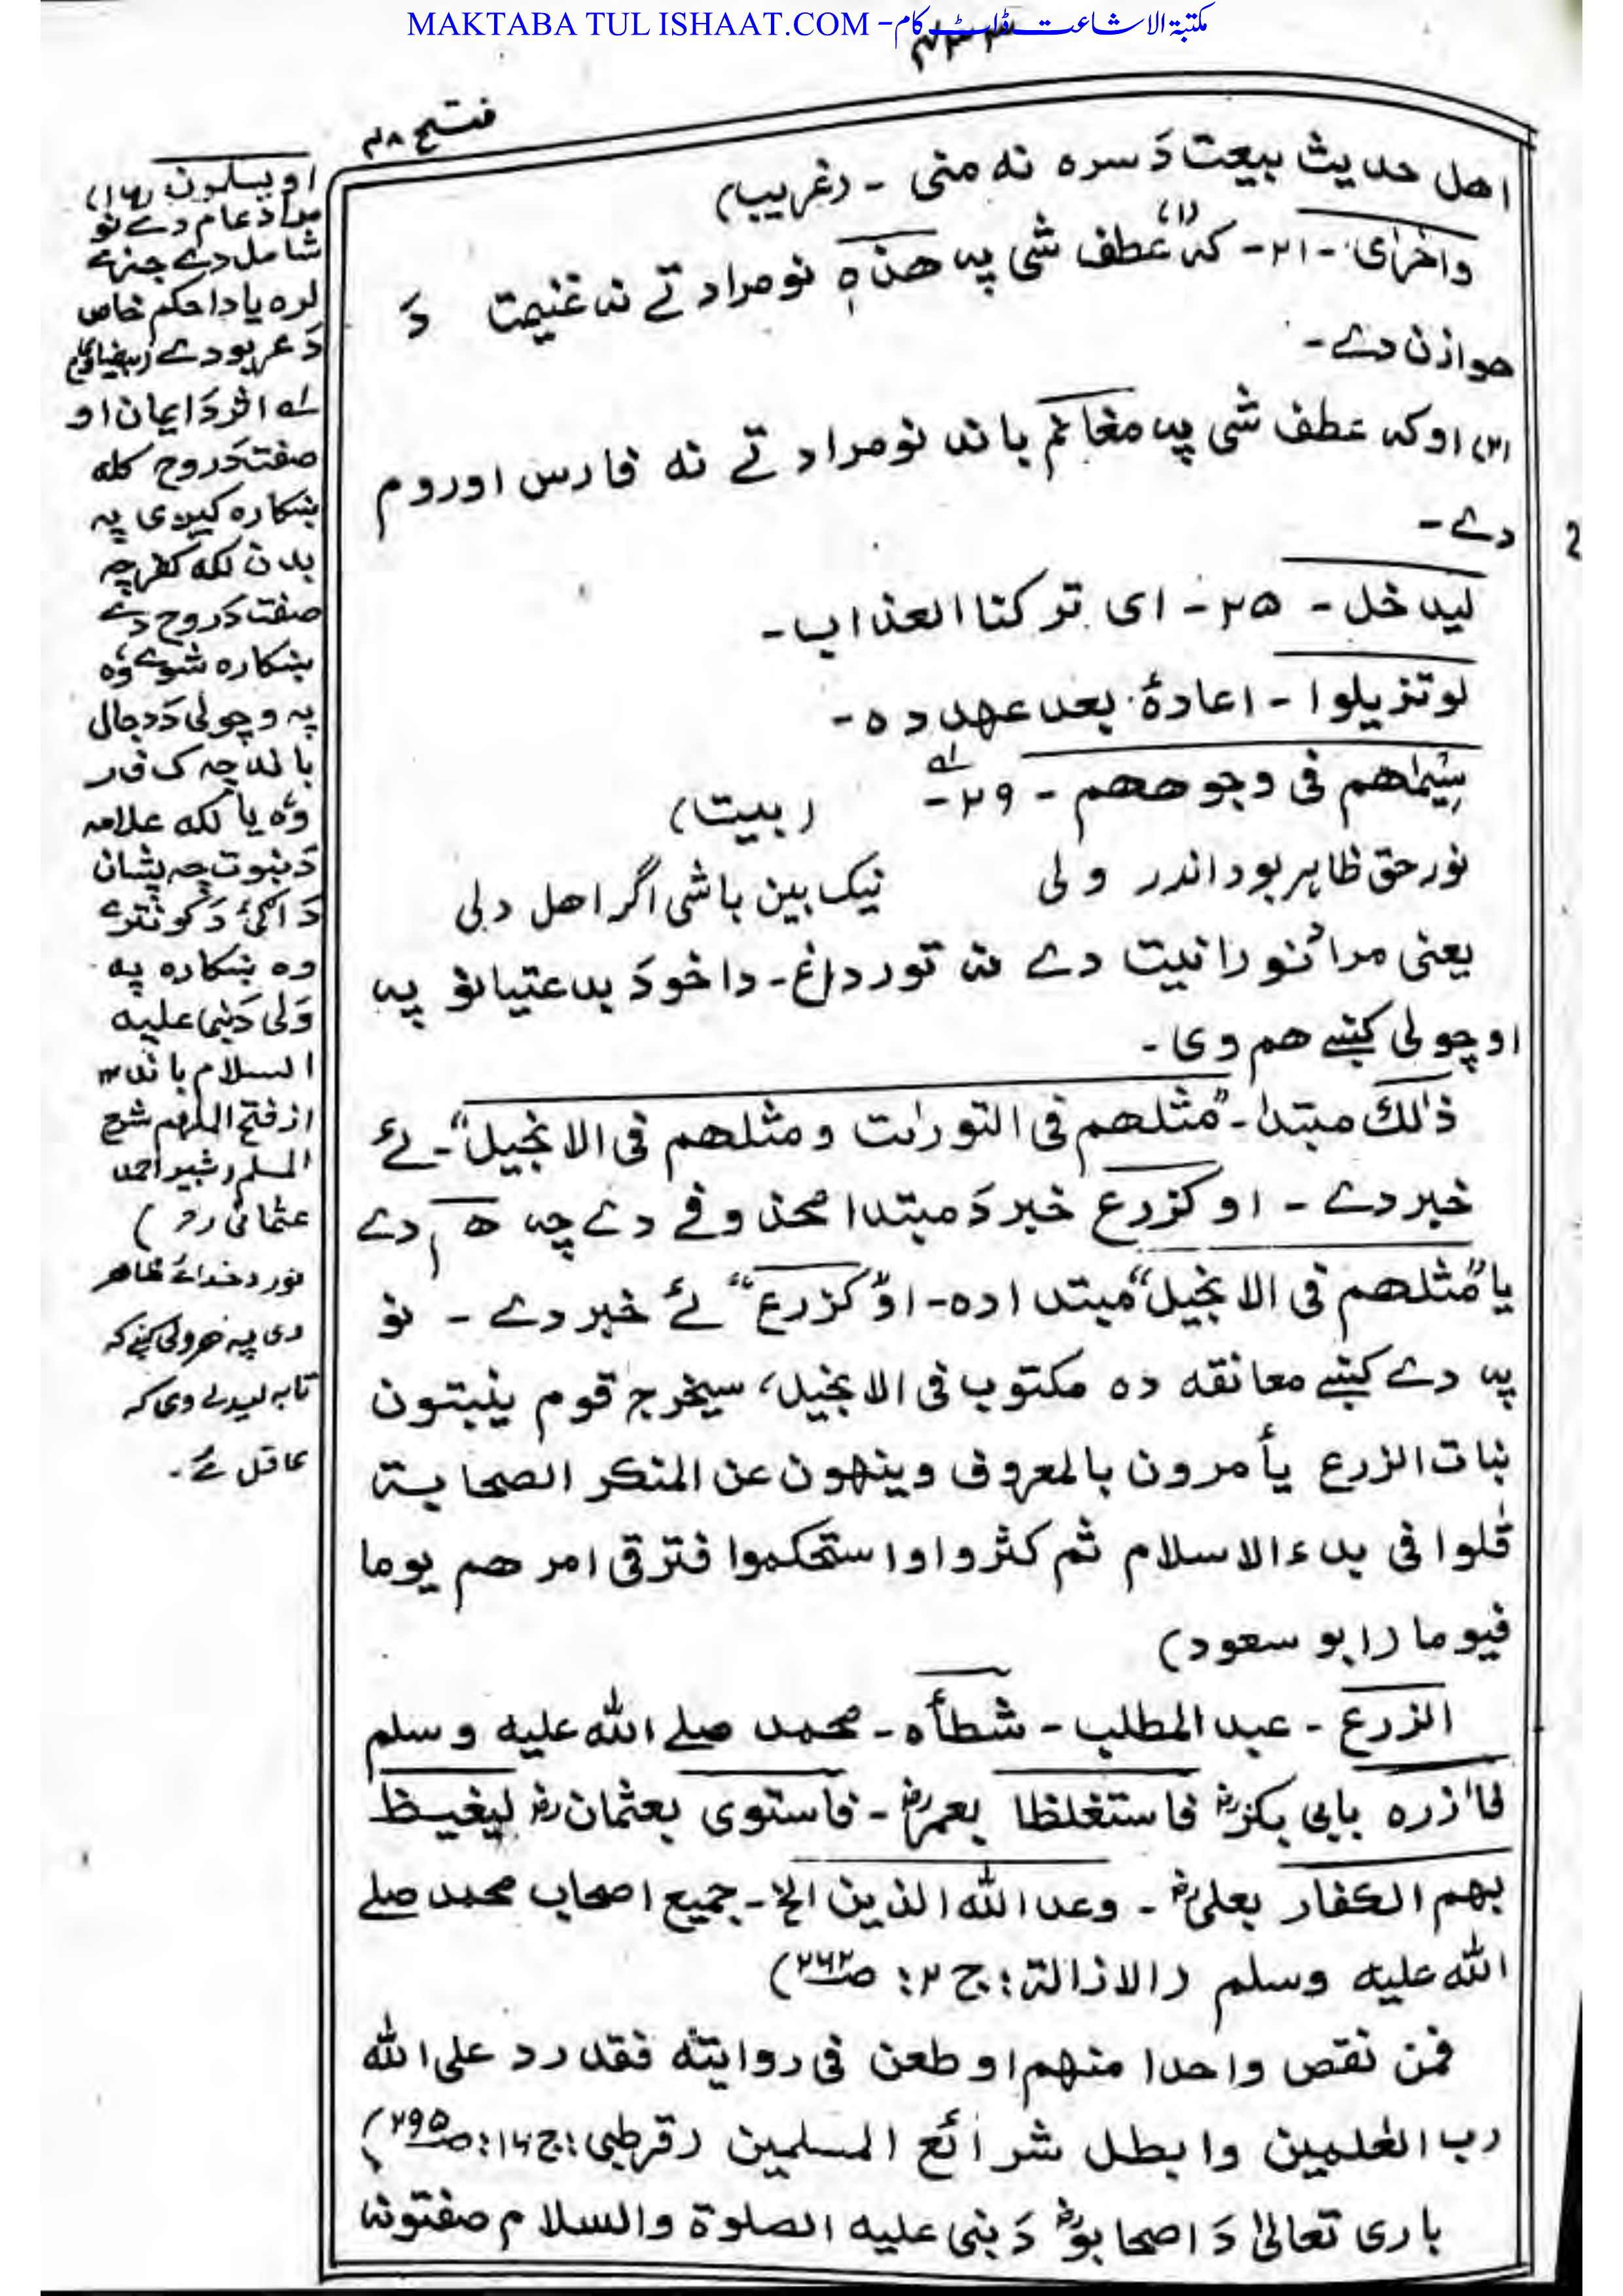 MAKTABA TUL ISHAAT.COM - مکتبۃ الاشاعت ڈاٹ کام
۷۳۳
فتح ۴۸
اهل حدیث بیعت دَ سره نه منی - (غریب)
واخرٰی - ۲۱ - که (۱) عطف شی په هذه نو مراد تے نه غنیمت دَ
هوازن دے -
(۲) او که عطف شی په مغانم باند نو مراد تے نه فارس او روم
دے -
لیدخل - ۲۵ - ای ترکنا العذاب -
لو تزیلوا - اعادۂ بعد عهد ده -
سِیْمٰاهم فی وجوههم - ۲۹ - (بیت)
نور حق ظاہر بود اندر ولی نیک بین باشی اگر اهل دلی
یعنی مراد نورانیت دے نه تور داغ - دا خو دَ بدعتیانو په
اوچولی کښے هم وی -
ذٰلك مبتدا - "مثلهم فی التورات ومثلهم فی الانجیل" - ئے
خبر دے - او کزرع خبر دَ مبتدا محذوفے دے چه هم دے
یا "مثلهم فی الانجیل" مبتدا ده - او "کزرع" ئے خبر دے - نو
په دے کښے معانقه ده مکتوب فی الانجیل، سیخرج قوم ینبتون
نبات الزرع یأمرون بالمعروف وینهون عن المنکر الصحابة
قلوا فی بدء الاسلام ثم کثروا واستحکموا فترقی امرهم یوما
فیوما (ابو سعود)
الزرع - عبد المطلب - شطأه - محمد صلے الله علیه وسلم
فاٰزره بابی بکرؓ فاستغلظا بعمرؓ - فاستوی بعثمانؓ لیغیظ
بهم الکفار بعلیؓ - وعد الله الذین الخ - جمیع اصحاب محمد صلے
الله علیه وسلم (الازالة: ج ۲: ص۲۶۲)
فمن نقص واحدا منهم او طعن فی روایته فقد رد علی الله
رب العٰلمین وابطل شرائع المسلمین (قرطبی: ج ۱۶: ص۲۹۵)
باری تعالیٰ دَ اصحابوؓ دَ نبی علیه الصلوة والسلام صفتونه
او یسلمون (۱۶)
مراد عام دے نو
شامل دے جزے
لره یا دا حکم خاص
دَ عربو دے (بیضاوی)
لے اثر دَ ایمان او
صفت دَ روح کله
ښکاره کیږی په
بدن لکه کفر چه
صفت دَ روح دے
ښکاره شوے وه
په وچولی دَ دجال
باندے چه ک ف ر
وه یا لکه علامه
دَ نبوت چه پشان
دَ اګئ دَ کونترے
وه ښکاره په
وَلی دَ نبی علیه
السلام باند ۱۲
از فتح الملهم شرح
المسلم (شبیر احمد
عثمانی رح)
نور د خدائے ظاهر
دی په هر ولی کښے که
تا به لیدلے وی که
عاقل ئے -